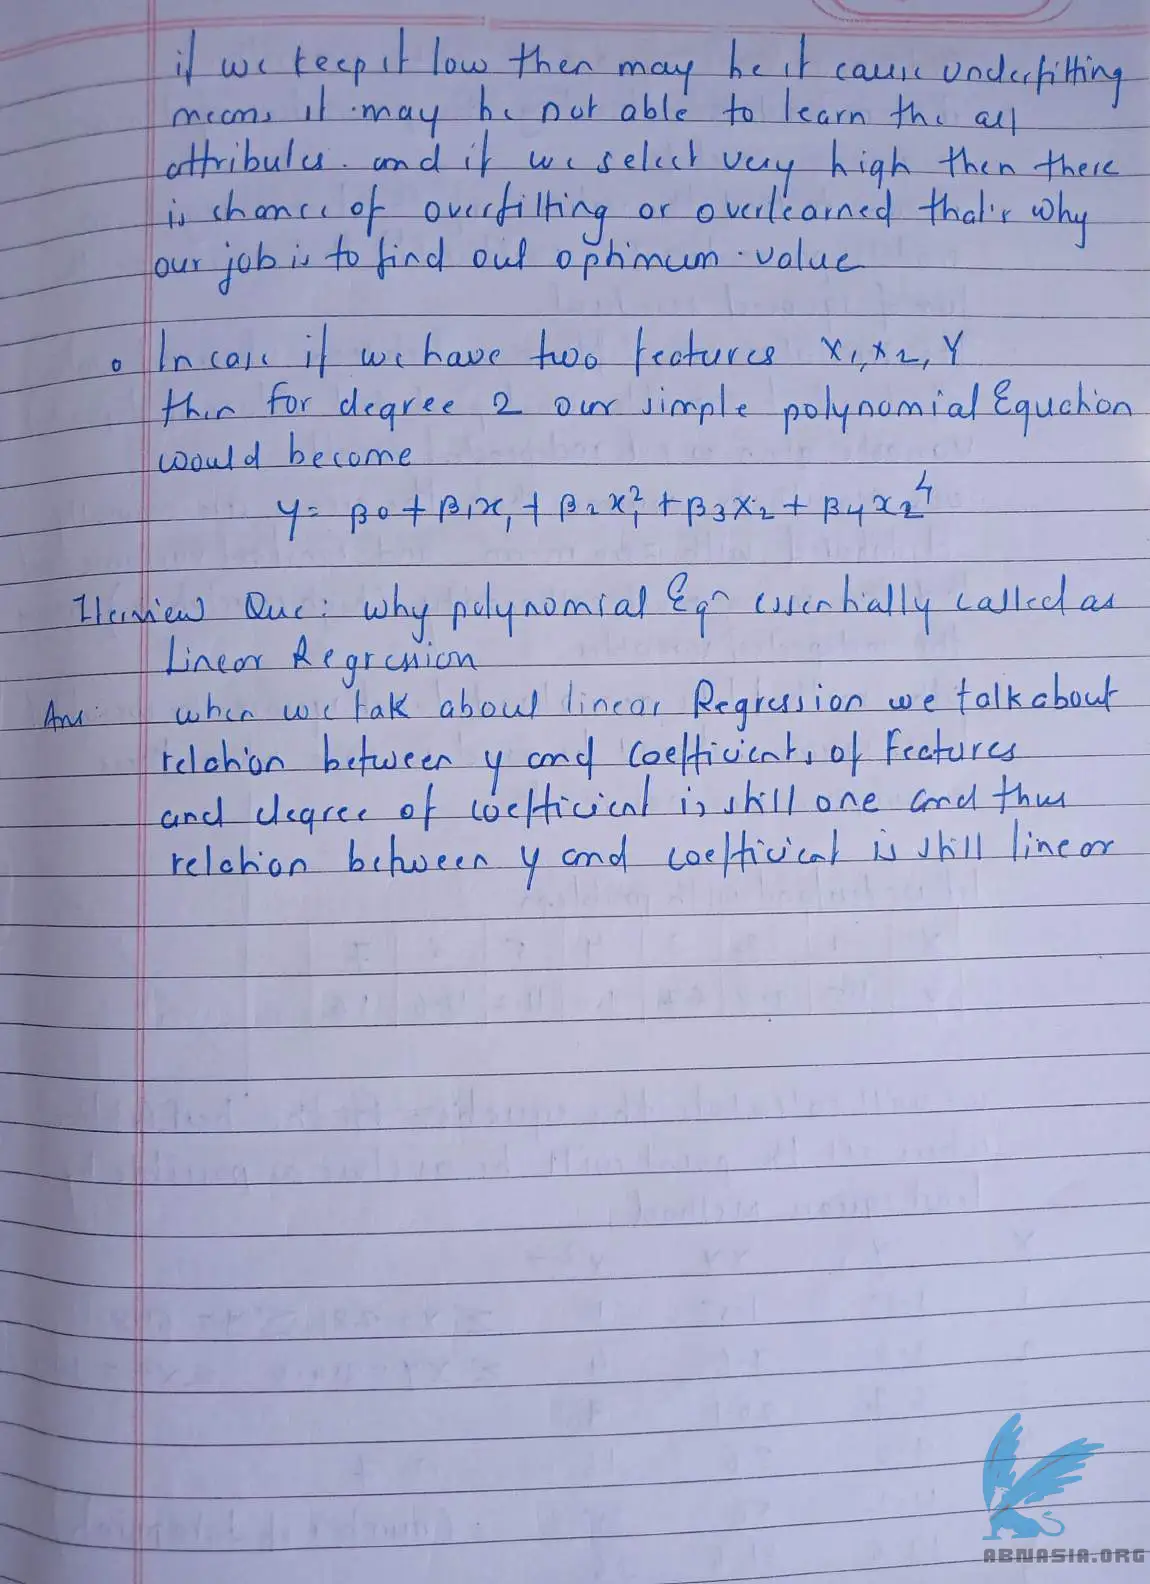 if we keep it low then may be it cause underfitting
means it may be not able to learn the all
attributes. and if we select very high then there
is chance of overfitting or overlearned that's why
our job is to find out optimum value
o In case if we have two features X1, X2, Y
then for degree 2 our simple polynomial Equation
would become
y = β0 + β1x1 + β2x1² + β3x2 + β4x2⁴
Iterview Que: why polynomial Eqn essentially called as
Linear Regression
Ans: when we talk about linear Regression we talk about
relation between y and coefficients of features
and degree of coefficient is still one and thus
relation between y and coefficient is still linear
ABNASIA.ORG